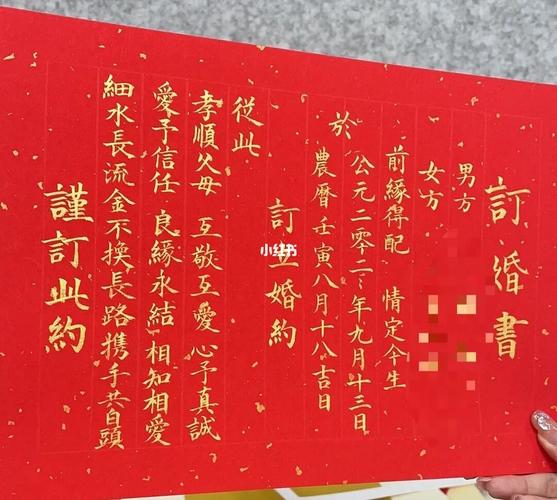 訂婚書
男方
女方
前緣得配 情定今生
於
公元二零二二年九月十三日
農曆壬寅八月十八吉日
訂立婚約
從此
孝順父母 互敬互愛 心予真誠
愛予信任 良緣永結 相知相愛
細水長流金不換長路携手共白頭
謹訂此約
小红书